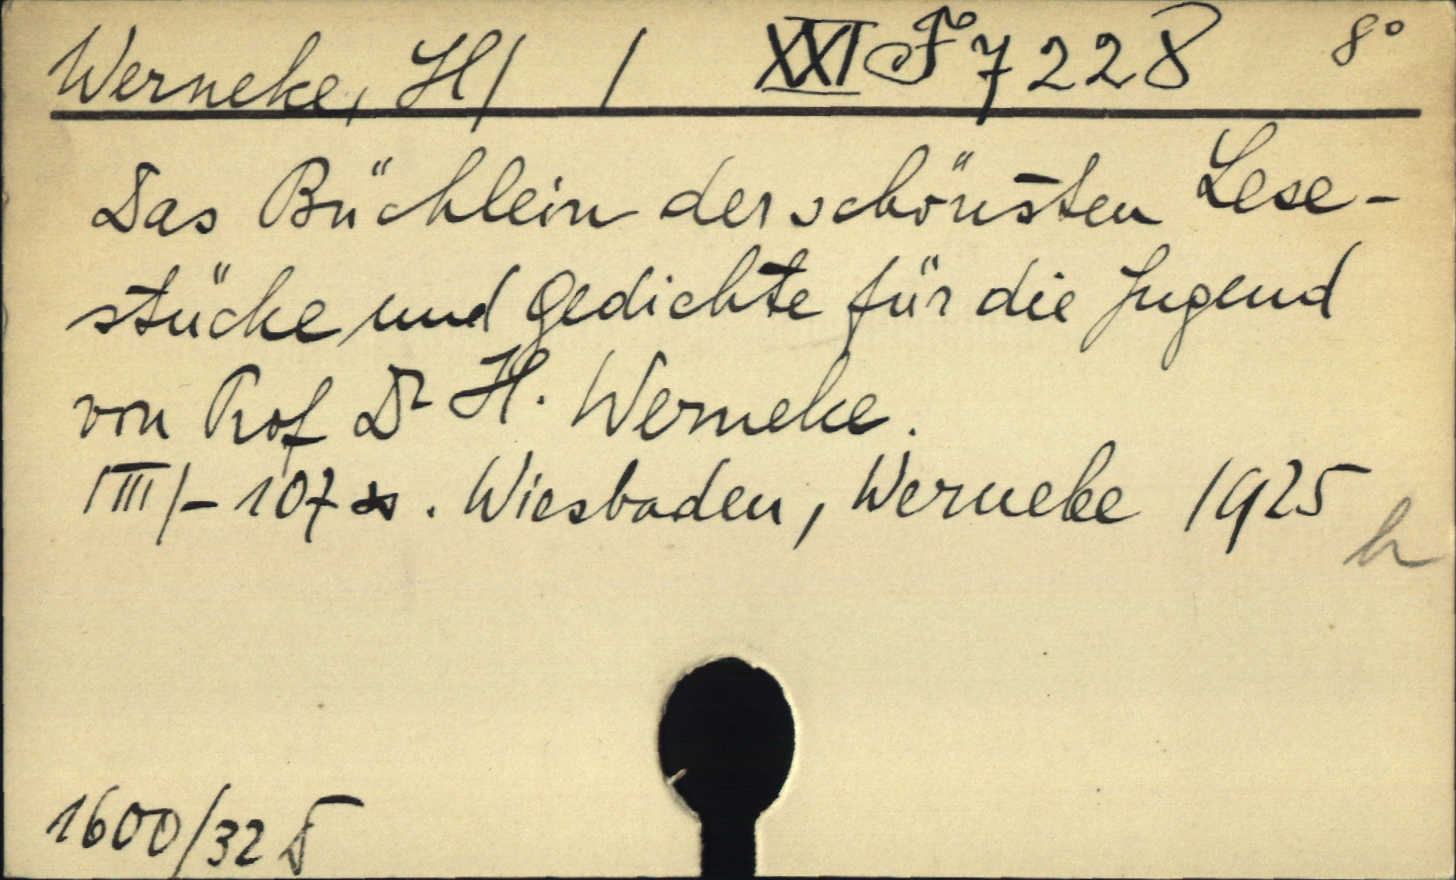 Werneke, H/ / XXI F 7228 8°
Das Büchlein der schönsten Lese-
stücke und Gedichte für die Jugend
von Prof Dr H. Werneke.
/III/-107 s. Wiesbaden, Werneke 1925
h
1600/32